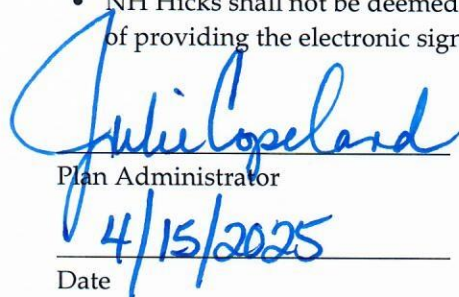 • NH Hicks shall not be deemed
of providing the electronic sign
Julie Copeland
Plan Administrator
4/15/2025
Date